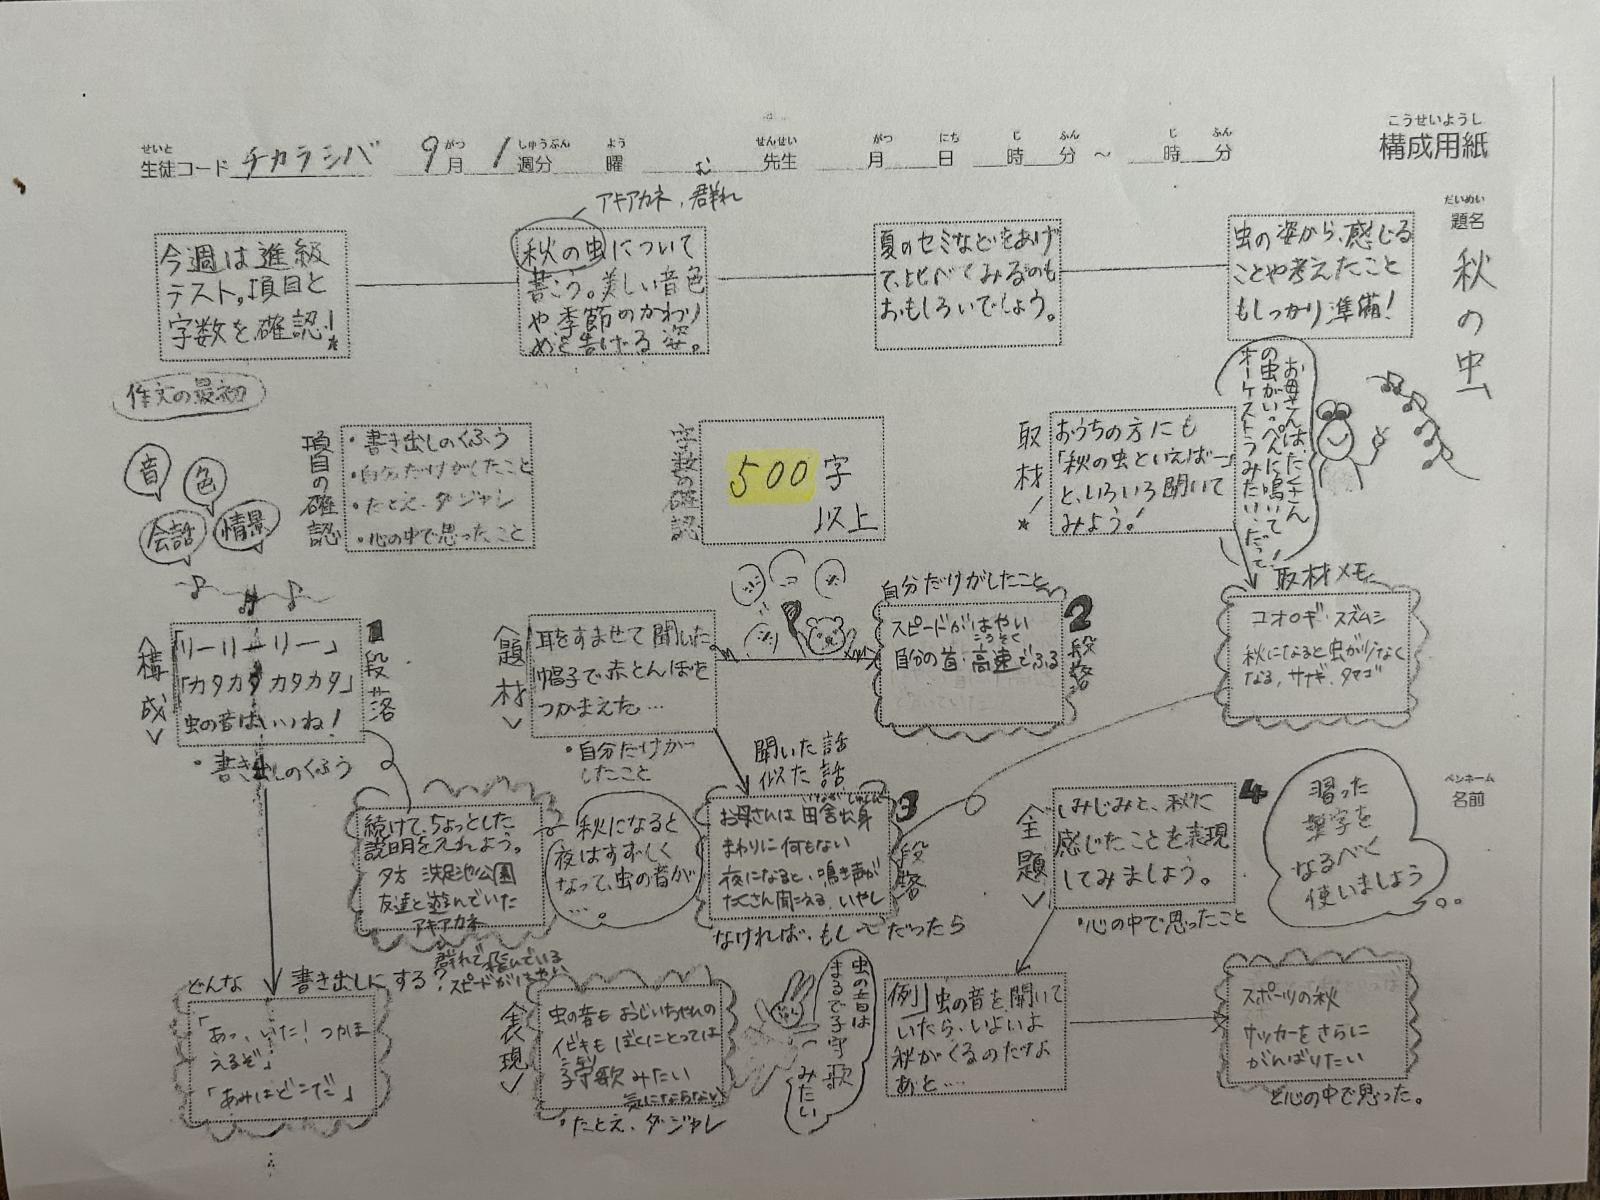 こうせいようし
構成用紙
せいと がつ しゅうぶん よう せんせい がつ にち じ ふん じ ふん
生徒コード チカラシバ 9月 1週分 曜 む 先生 月 日 時 分 〜 時 分
だいめい
題名
秋の虫
ペンネーム
名前
今週は進級
テスト。項目と
字数を確認!
アキアカネ、群れ
秋の虫について
書こう。美しい音色
や季節のかわり
めを告げる姿。
夏のセミなどをあげ
て、比べてみるのも
おもしろいでしょう。
虫の姿から、感じる
ことや考えたこと
もしっかり準備!
作文の最初
音
色
会話
情景
項目の確認
・書き出しのくふう
・自分だけがしたこと
・たとえ、ダジャレ
・心の中で思ったこと
字数の確認
500字
以上
取材!
おうちの方にも
「秋の虫といえば―」
と、いろいろ聞いて
みよう!
お母さんは、たくさん
の虫がいっぺんに鳴いて、
オーケストラみたい、だって!
取材メモ
コオロギ・スズムシ
秋になると虫が少なく
なる、サナギ、タマゴ
<構成>
1段落
「リーリーリー」
「カタカタカタカタ」
虫の音はいいね!
・書き出しのくふう
<題材>
耳をすませて聞いた。
帽子で赤とんぼを
つかまえた…
・自分だけが
したこと
自分だけがしたこと
2段落
スピードがはやい
こうそく
自分の首・高速でふる
続けて、ちょっとした
説明を入れよう。
夕方 洗足池公園
友達と遊んでいた
アキアカネ
群れで飛んでいる
スピードがはやい
秋になると
夜はすずしく
なって、虫の音が
…。
聞いた話
似た話
3段落
いなかしゅっしん
お母さんは田舎出身
まわりに何もない
夜になると、鳴き声が
たくさん聞こえる、いやし
なければ、もし〜だったら
<主題>
4
しみじみと、秋に
感じたことを表現
してみましょう。
・心の中で思ったこと
習った
漢字を
なるべく
使いましよう
どんな 書き出しにする?
「あっ、いた! つかま
えるぞ」
「あみはどこだ」
<表現>
虫の音も おじいちゃんの
イビキも ぼくにとっては
子守歌みたい
気にならない
・たとえ、ダジャレ
虫の音は
まるで子守歌
みたい
例 虫の音を聞いて
いたら、いよいよ
秋がくるのだなぁ
あと…
スポーツの秋
サッカーをさらに
がんばりたい
と心の中で思った。